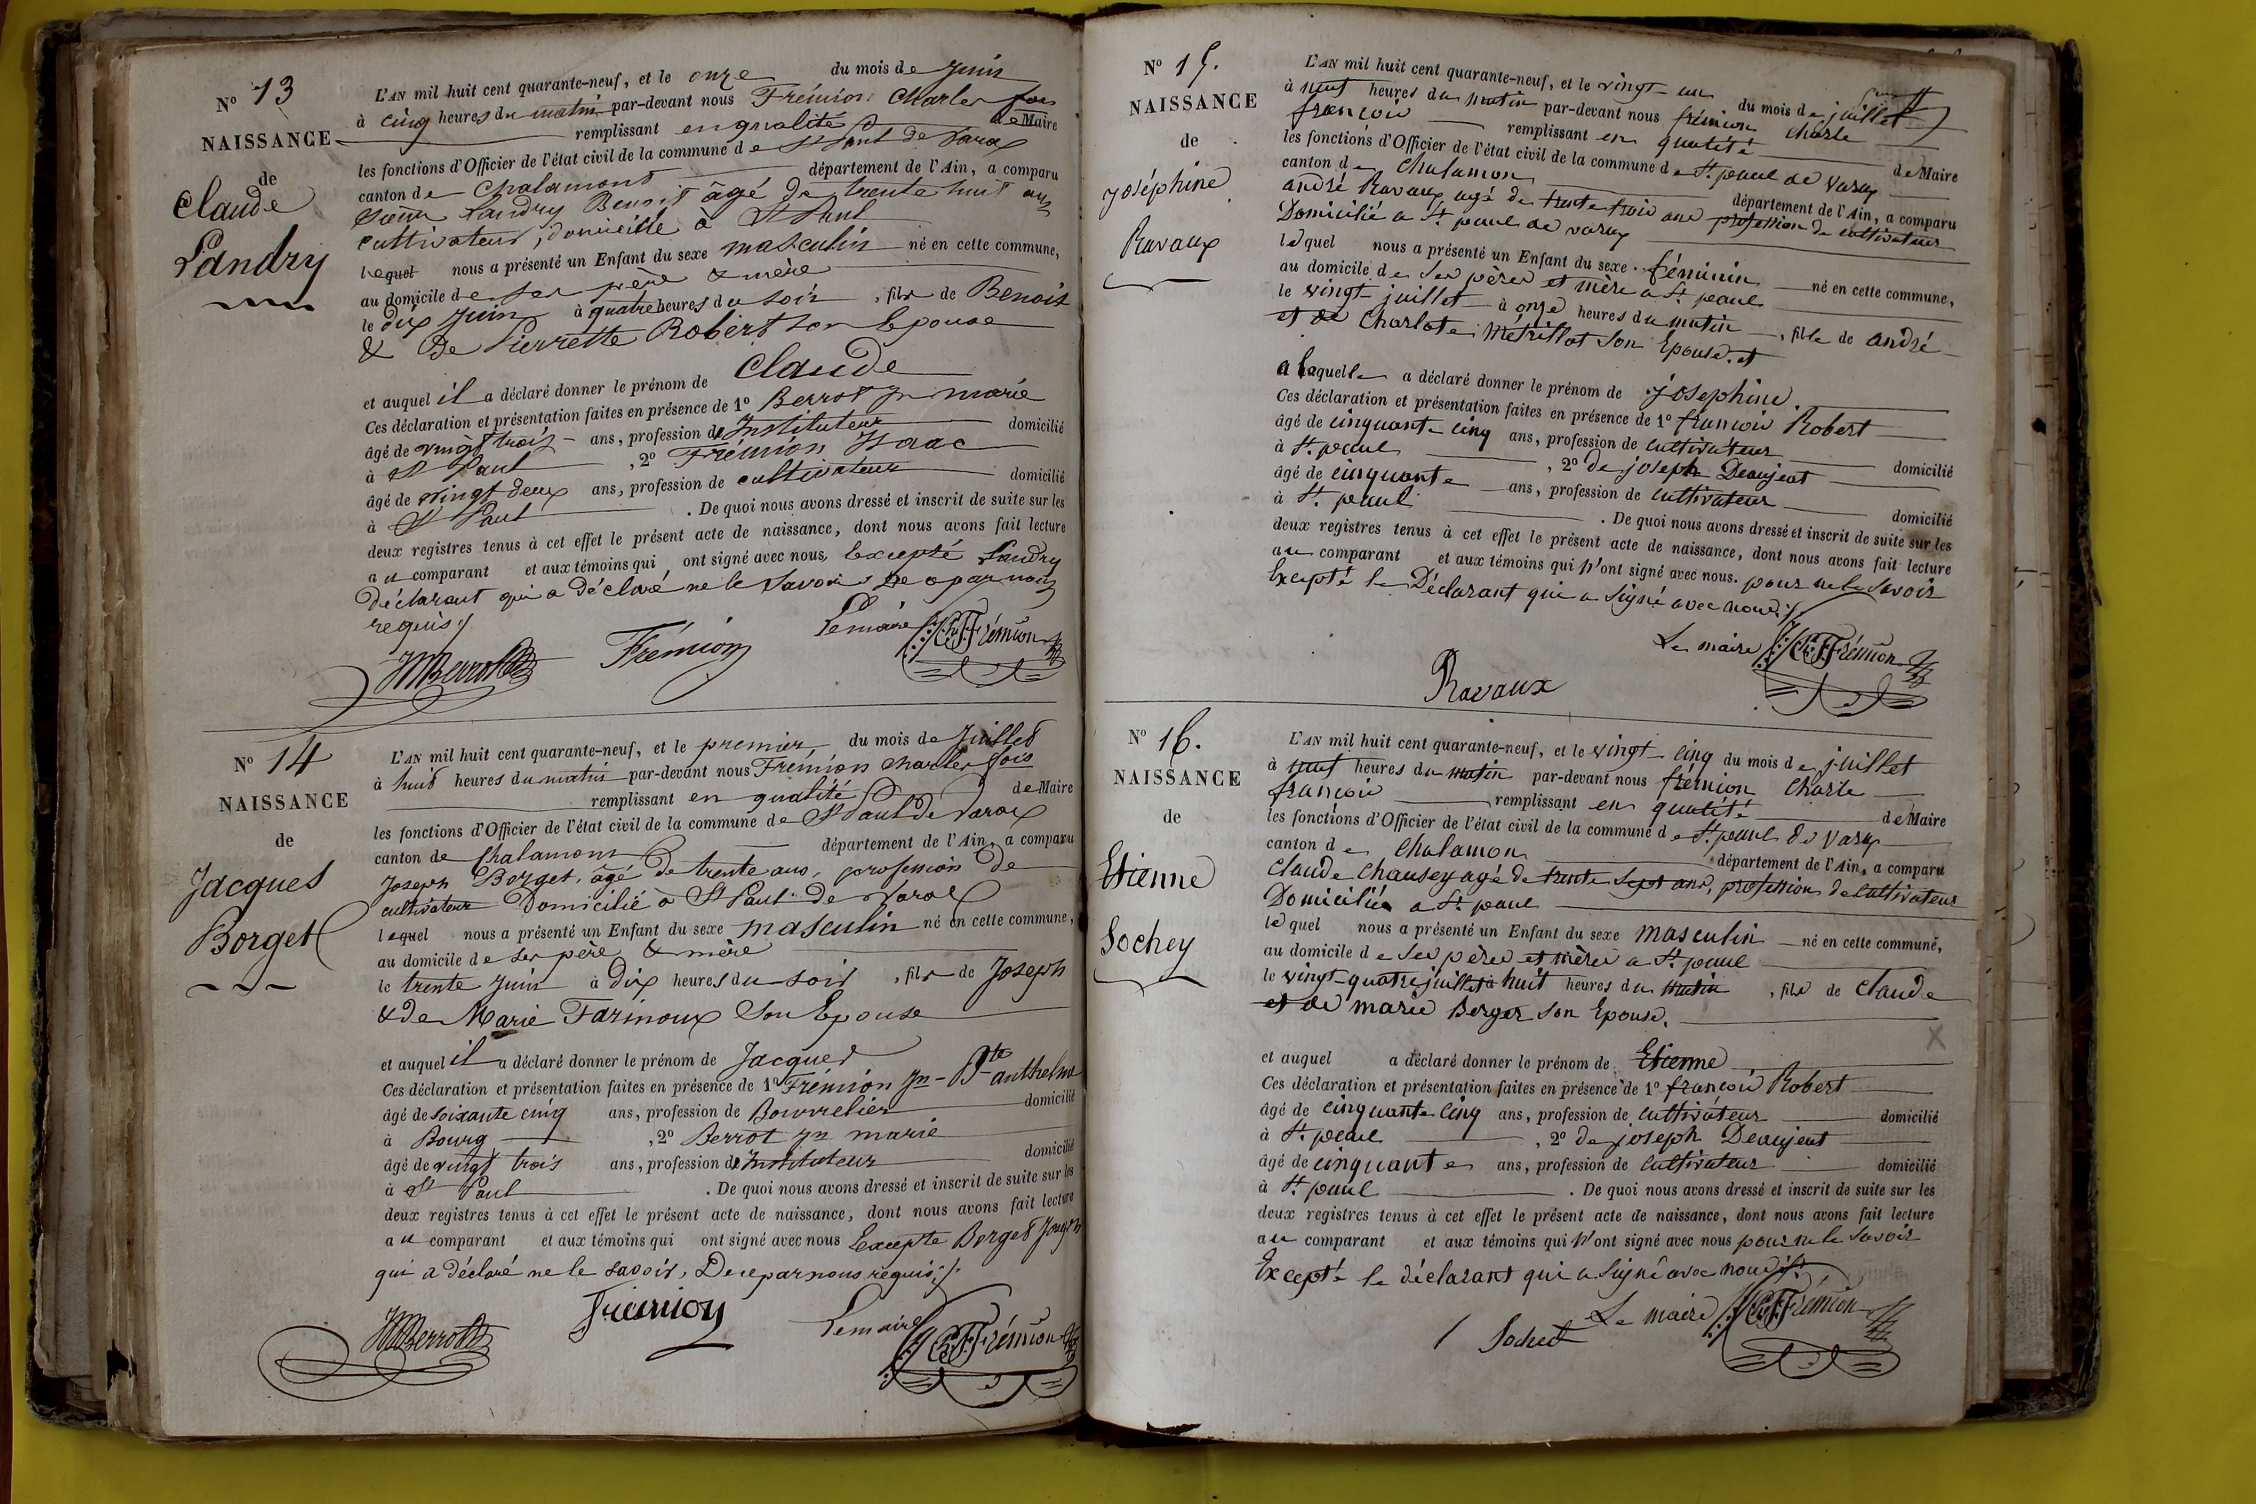 N° 13
NAISSANCE
de
Claude
Landry
L'AN mil huit cent quarante-neuf, et le onze du mois de Juin
à cinq heures du matin par-devant nous Frémion Charles fois
remplissant en qualité de Maire
les fonctions d'Officier de l'état civil de la commune de St Paul de Varax
canton de Chalamont département de l'Ain, a comparu
Landry Benoit âgé de trente huit ans
cultivateur, domicilié à St Paul
lequel nous a présenté un Enfant du sexe masculin né en cette commune,
au domicile de ses père & mère
le dix Juin à quatre heures du soir, fils de Benoit
& de Pierrette Robert son Epouse
et auquel il a déclaré donner le prénom de Claude
Ces déclaration et présentation faites en présence de 1° Berrot Jn marie
âgé de vingt trois ans, profession de Instituteur domicilié
à St Paul, 2° Frémion Isaac
âgé de vingt deux ans, profession de cultivateur domicilié
à St Paul. De quoi nous avons dressé et inscrit de suite sur les
deux registres tenus à cet effet le présent acte de naissance, dont nous avons fait lecture
au comparant et aux témoins qui ont signé avec nous, Excepté Landry
déclarant qui a déclaré ne le savoir de ce par nous
requis
JMBerrot Frémion Le maire Ch Frémion
N° 14
NAISSANCE
de
Jacques
Borget
L'AN mil huit cent quarante-neuf, et le premier du mois de Juillet
à huit heures du matin par-devant nous Frémion Charles fois
remplissant en qualité de Maire
les fonctions d'Officier de l'état civil de la commune de St Paul de Varax
canton de Chalamont département de l'Ain, a comparu
Joseph Borget, âgé de trente ans, profession de
cultivateur Domicilié à St Paul de Varax
lequel nous a présenté un Enfant du sexe masculin né en cette commune,
au domicile de ses père & mère
le trente Juin à dix heures du soir, fils de Joseph
& de Marie Farinoux son Epouse
et auquel il a déclaré donner le prénom de Jacques
Ces déclaration et présentation faites en présence de 1° Frémion Jn-Bte anthelme
âgé de soixante cinq ans, profession de Bourrelier domicilié
à Bourg, 2° Berrot Jn marie
âgé de vingt trois ans, profession de Instituteur domicilié
à St Paul. De quoi nous avons dressé et inscrit de suite sur les
deux registres tenus à cet effet le présent acte de naissance, dont nous avons fait lecture
au comparant et aux témoins qui ont signé avec nous Excepte Borget Joseph
qui a déclaré ne le savoir, De ce par nous requis
JMBerrot Frémion Le maire Ch Frémion
N° 15.
NAISSANCE
de
joséphine
Ravaux
L'AN mil huit cent quarante-neuf, et le vingt-un du mois de juillet
à neuf heures du matin par-devant nous frémion Charle
françois remplissant en qualité de Maire
les fonctions d'Officier de l'état civil de la commune de St. paul de varax
canton de Chalamon département de l'Ain, a comparu
andré Ravaux agé de trente trois ans profession de cultivateur
Domicilié a St. paul de varax
lequel nous a présenté un Enfant du sexe féminin né en cette commune,
au domicile de ses pères et mère a St. paul
le vingt juillet à onze heures du matin, fille de andré
et de Charlote Métrillot son Epouse. et
a laquelle a déclaré donner le prénom de joséphine.
Ces déclaration et présentation faites en présence de 1° françois Robert
âgé de cinquante cinq ans, profession de cultivateur domicilié
à St. paul, 2° de joseph Deaujeat
âgé de cinquante ans, profession de cultivateur domicilié
à St. paul. De quoi nous avons dressé et inscrit de suite sur les
deux registres tenus à cet effet le présent acte de naissance, dont nous avons fait lecture
au comparant et aux témoins qui n'ont signé avec nous. pour ne le savoir
Excepté le Déclarant qui a signé avec nous
Le maire Ch Frémion
Ravaux
N° 16.
NAISSANCE
de
Etienne
Sochey
L'AN mil huit cent quarante-neuf, et le vingt-cinq du mois de juillet
à neuf heures du matin par-devant nous frémion Charle
françois remplissant en qualité de Maire
les fonctions d'Officier de l'état civil de la commune de St. paul de varax
canton de Chalamon département de l'Ain, a comparu
Claude agé de trente sept ans, profession de cultivateur
Domicilié a St. paul
lequel nous a présenté un Enfant du sexe masculin né en cette commune,
au domicile de ses pères et mères a St. paul
le vingt-quatre juillet à huit heures du matin, fils de Claude
et de marie Berger son Epouse.
et auquel a déclaré donner le prénom de Etienne
Ces déclaration et présentation faites en présence de 1° françois Robert
âgé de cinquante cinq ans, profession de cultivateur domicilié
à St. paul, 2° de joseph Deaujeat
âgé de cinquante ans, profession de cultivateur domicilié
à St. paul. De quoi nous avons dressé et inscrit de suite sur les
deux registres tenus à cet effet le présent acte de naissance, dont nous avons fait lecture
au comparant et aux témoins qui n'ont signé avec nous pour ne le savoir
Excepté le déclarant qui a signé avec nous
Le maire Ch Frémion